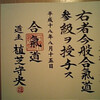 右者今般合氣道
参級ヲ授与ス
平成十八年八月十五日
合氣道
道主 植芝守央